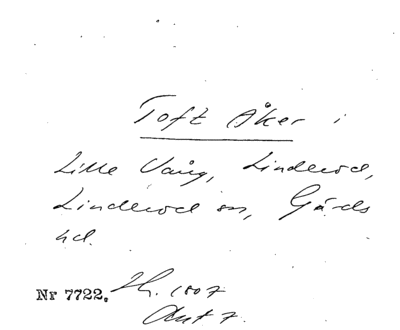 Toft Åker i
Lille Vång, Linderöd,
Linderöd sn, Gärds
hd.
Nr 7722. Sk. 1807
Akt 7.